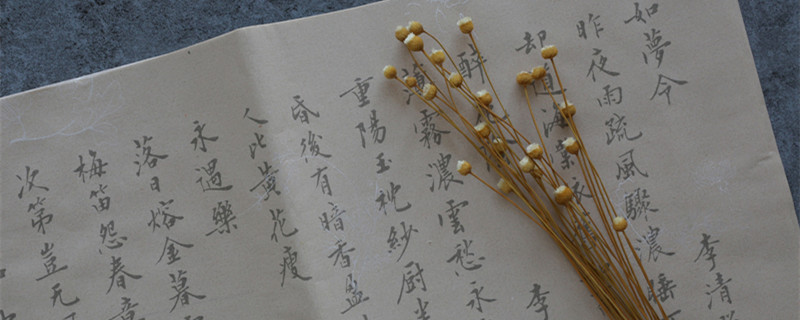 如夢令 李清
昨夜雨疏風驟濃睡
却道海棠依
醉 李
薄霧濃雲愁永
重陽玉枕紗厨半
昏後有暗香盈
人比黄花瘦
永遇樂
落日熔金暮
梅笛怨春意
次第豈无